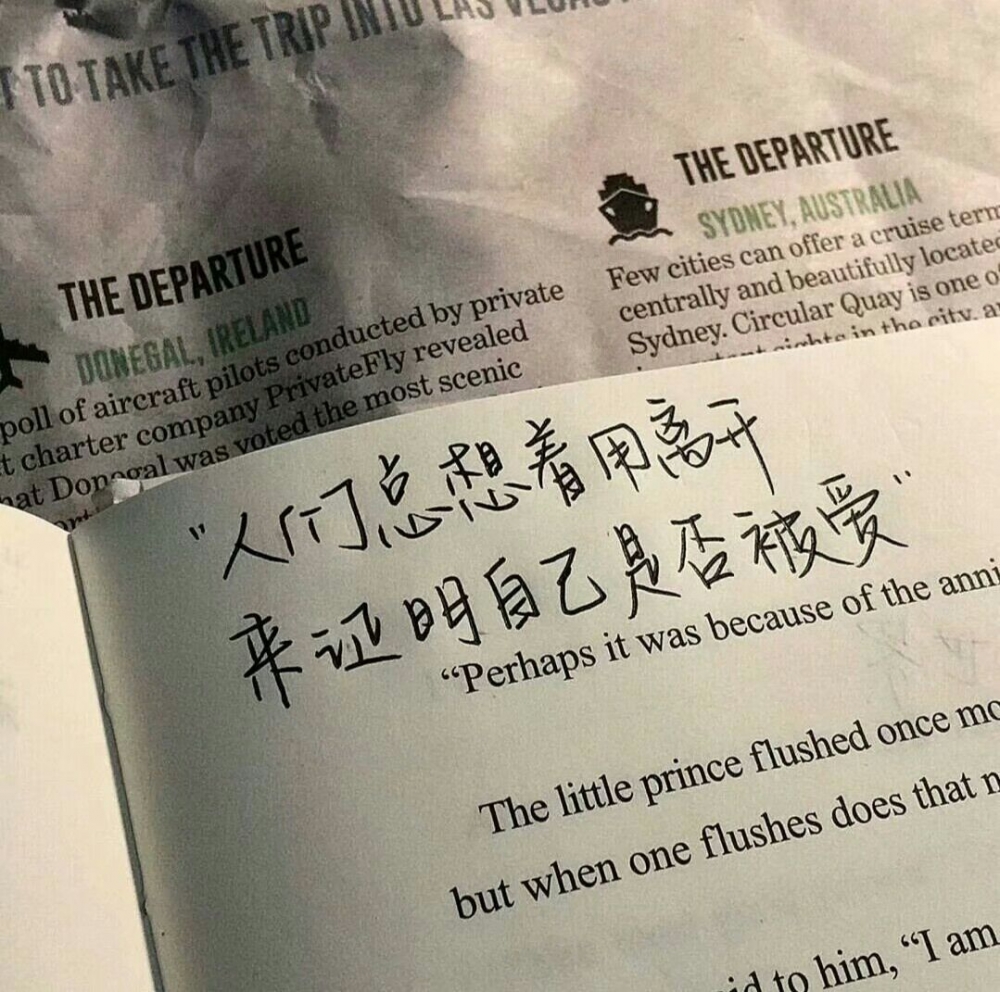 T TO TAKE THE TRIP INTO LAS VEGAS
THE DEPARTURE
SYDNEY, AUSTRALIA
Few cities can offer a cruise term
centrally and beautifully locate
Sydney. Circular Quay is one o
sights in the city, a
THE DEPARTURE
DONEGAL, IRELAND
poll of aircraft pilots conducted by private
t charter company PrivateFly revealed
hat Donegal was voted the most scenic
"人们总想着用离开
来证明自己是否被爱"
“Perhaps it was because of the anni
The little prince flushed once mo
but when one flushes does that n
id to him, “I am